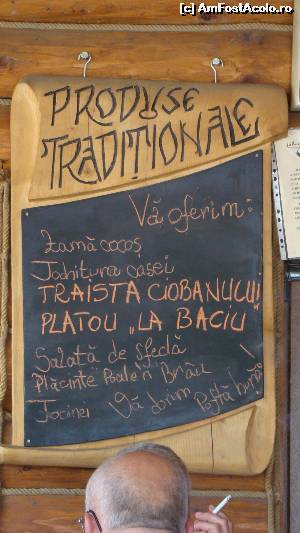 (c) AmFostAcolo.ro
PRODUSE
TRADIȚIONALE
Vă oferim:
Zamă cocoș
Tochitura casei
TRAISTA CIOBANULUI!
PLATOU „LA BACIU"
Salată de sfeclă
Plăcinte "Poale'n Brâu"
Tocinei
Vă dorim Poftă bună!